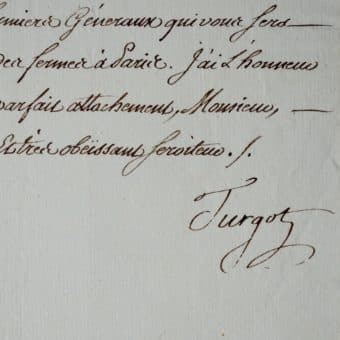 rmiers Généraux qui vous fera —
des fermes à Paris. J'ai L'honneur
parfait attachement, Monsieur, —
Et très obéissant Serviteur ./.
Turgot